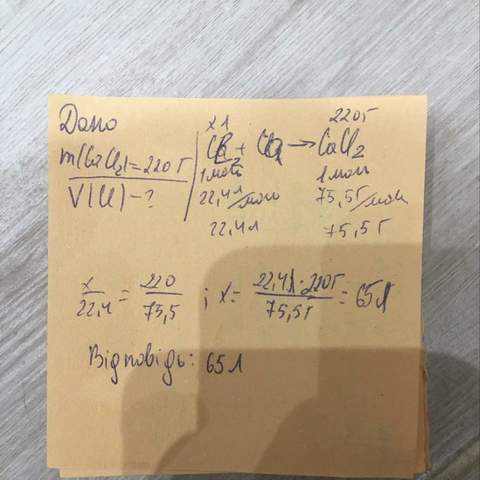 Дано
m(CaCl2)=220г
V(Cl)-?
x л 220г
Cl2 + Ca → CaCl2
1 моль 1 моль
22,4л/моль 75,5г/моль
22,4л 75,5г
x/22,4 = 220/75,5 ; x = 22,4л·220г/75,5г = 65л
Відповідь: 65л